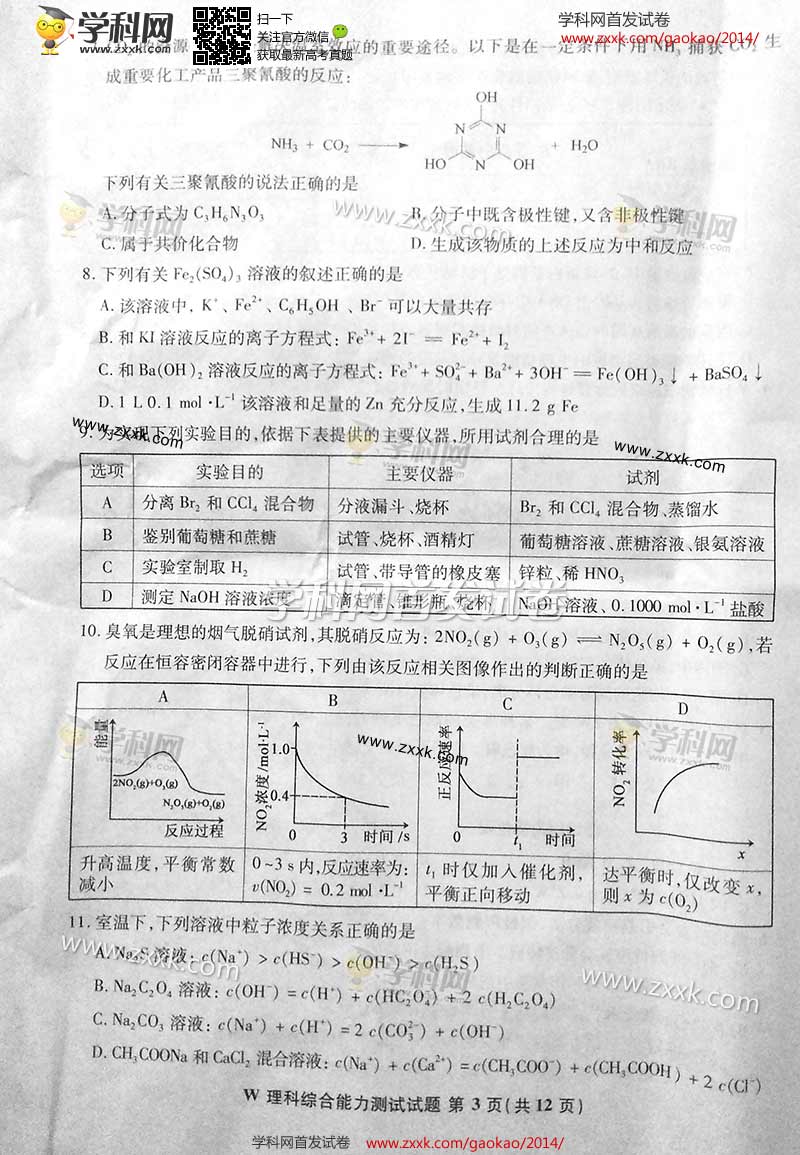 学科网
www.zxxk.com
扫一下
关注官方微信
获取最新高考真题
学科网首发试卷
www.zxxk.com/gaokao/2014/
效应的重要途径。以下是在一定条件下用 NH₃ 捕获 CO₂ 生
成重要化工产品三聚氰酸的反应:
NH₃ + CO₂ ⟶ OH N N HO N OH + H₂O
下列有关三聚氰酸的说法正确的是
A.分子式为 C₃H₆N₃O₃ B.分子中既含极性键,又含非极性键
C.属于共价化合物 D.生成该物质的上述反应为中和反应
8.下列有关 Fe₂(SO₄)₃ 溶液的叙述正确的是
A.该溶液中, K⁺、Fe²⁺、C₆H₅OH 、Br⁻ 可以大量共存
B.和 KI 溶液反应的离子方程式: Fe³⁺ + 2I⁻ ═ Fe²⁺ + I₂
C.和 Ba(OH)₂ 溶液反应的离子方程式: Fe³⁺ + SO₄²⁻ + Ba²⁺ + 3OH⁻ ═ Fe(OH)₃↓ + BaSO₄↓
D.1 L 0.1 mol·L⁻¹ 该溶液和足量的 Zn 充分反应,生成 11.2 g Fe
9.为实现下列实验目的,依据下表提供的主要仪器,所用试剂合理的是
选项 实验目的 主要仪器 试剂
A 分离 Br₂ 和 CCl₄ 混合物 分液漏斗、烧杯 Br₂ 和 CCl₄ 混合物、蒸馏水
B 鉴别葡萄糖和蔗糖 试管、烧杯、酒精灯 葡萄糖溶液、蔗糖溶液、银氨溶液
C 实验室制取 H₂ 试管、带导管的橡皮塞 锌粒、稀 HNO₃
D 测定 NaOH 溶液浓度 滴定管、锥形瓶、烧杯 NaOH 溶液、0.1000 mol·L⁻¹ 盐酸
10.臭氧是理想的烟气脱硝试剂,其脱硝反应为: 2NO₂(g) + O₃(g) ⇌ N₂O₅(g) + O₂(g),若
反应在恒容密闭容器中进行,下列由该反应相关图像作出的判断正确的是
A B C D
能量
2NO₂(g)+O₃(g)
N₂O₅(g)+O₂(g)
反应过程
NO₂浓度/mol·L⁻¹
1.0
0.4
0 3 时间/s
正反应速率
0 t₁ 时间
NO₂ 转化率
x
升高温度,平衡常数
减小
0~3 s 内,反应速率为:
v(NO₂) = 0.2 mol·L⁻¹
t₁ 时仅加入催化剂,
平衡正向移动
达平衡时,仅改变 x,
则 x 为 c(O₂)
11.室温下,下列溶液中粒子浓度关系正确的是
A.Na₂S 溶液: c(Na⁺) > c(HS⁻) > c(OH⁻) > c(H₂S)
B.Na₂C₂O₄ 溶液: c(OH⁻) = c(H⁺) + c(HC₂O₄⁻) + 2 c(H₂C₂O₄)
C.Na₂CO₃ 溶液: c(Na⁺) + c(H⁺) = 2 c(CO₃²⁻) + c(OH⁻)
D.CH₃COONa 和 CaCl₂ 混合溶液: c(Na⁺) + c(Ca²⁺) = c(CH₃COO⁻) + c(CH₃COOH) + 2 c(Cl⁻)
W 理科综合能力测试试题 第 3 页(共 12 页)
学科网首发试卷 www.zxxk.com/gaokao/2014/